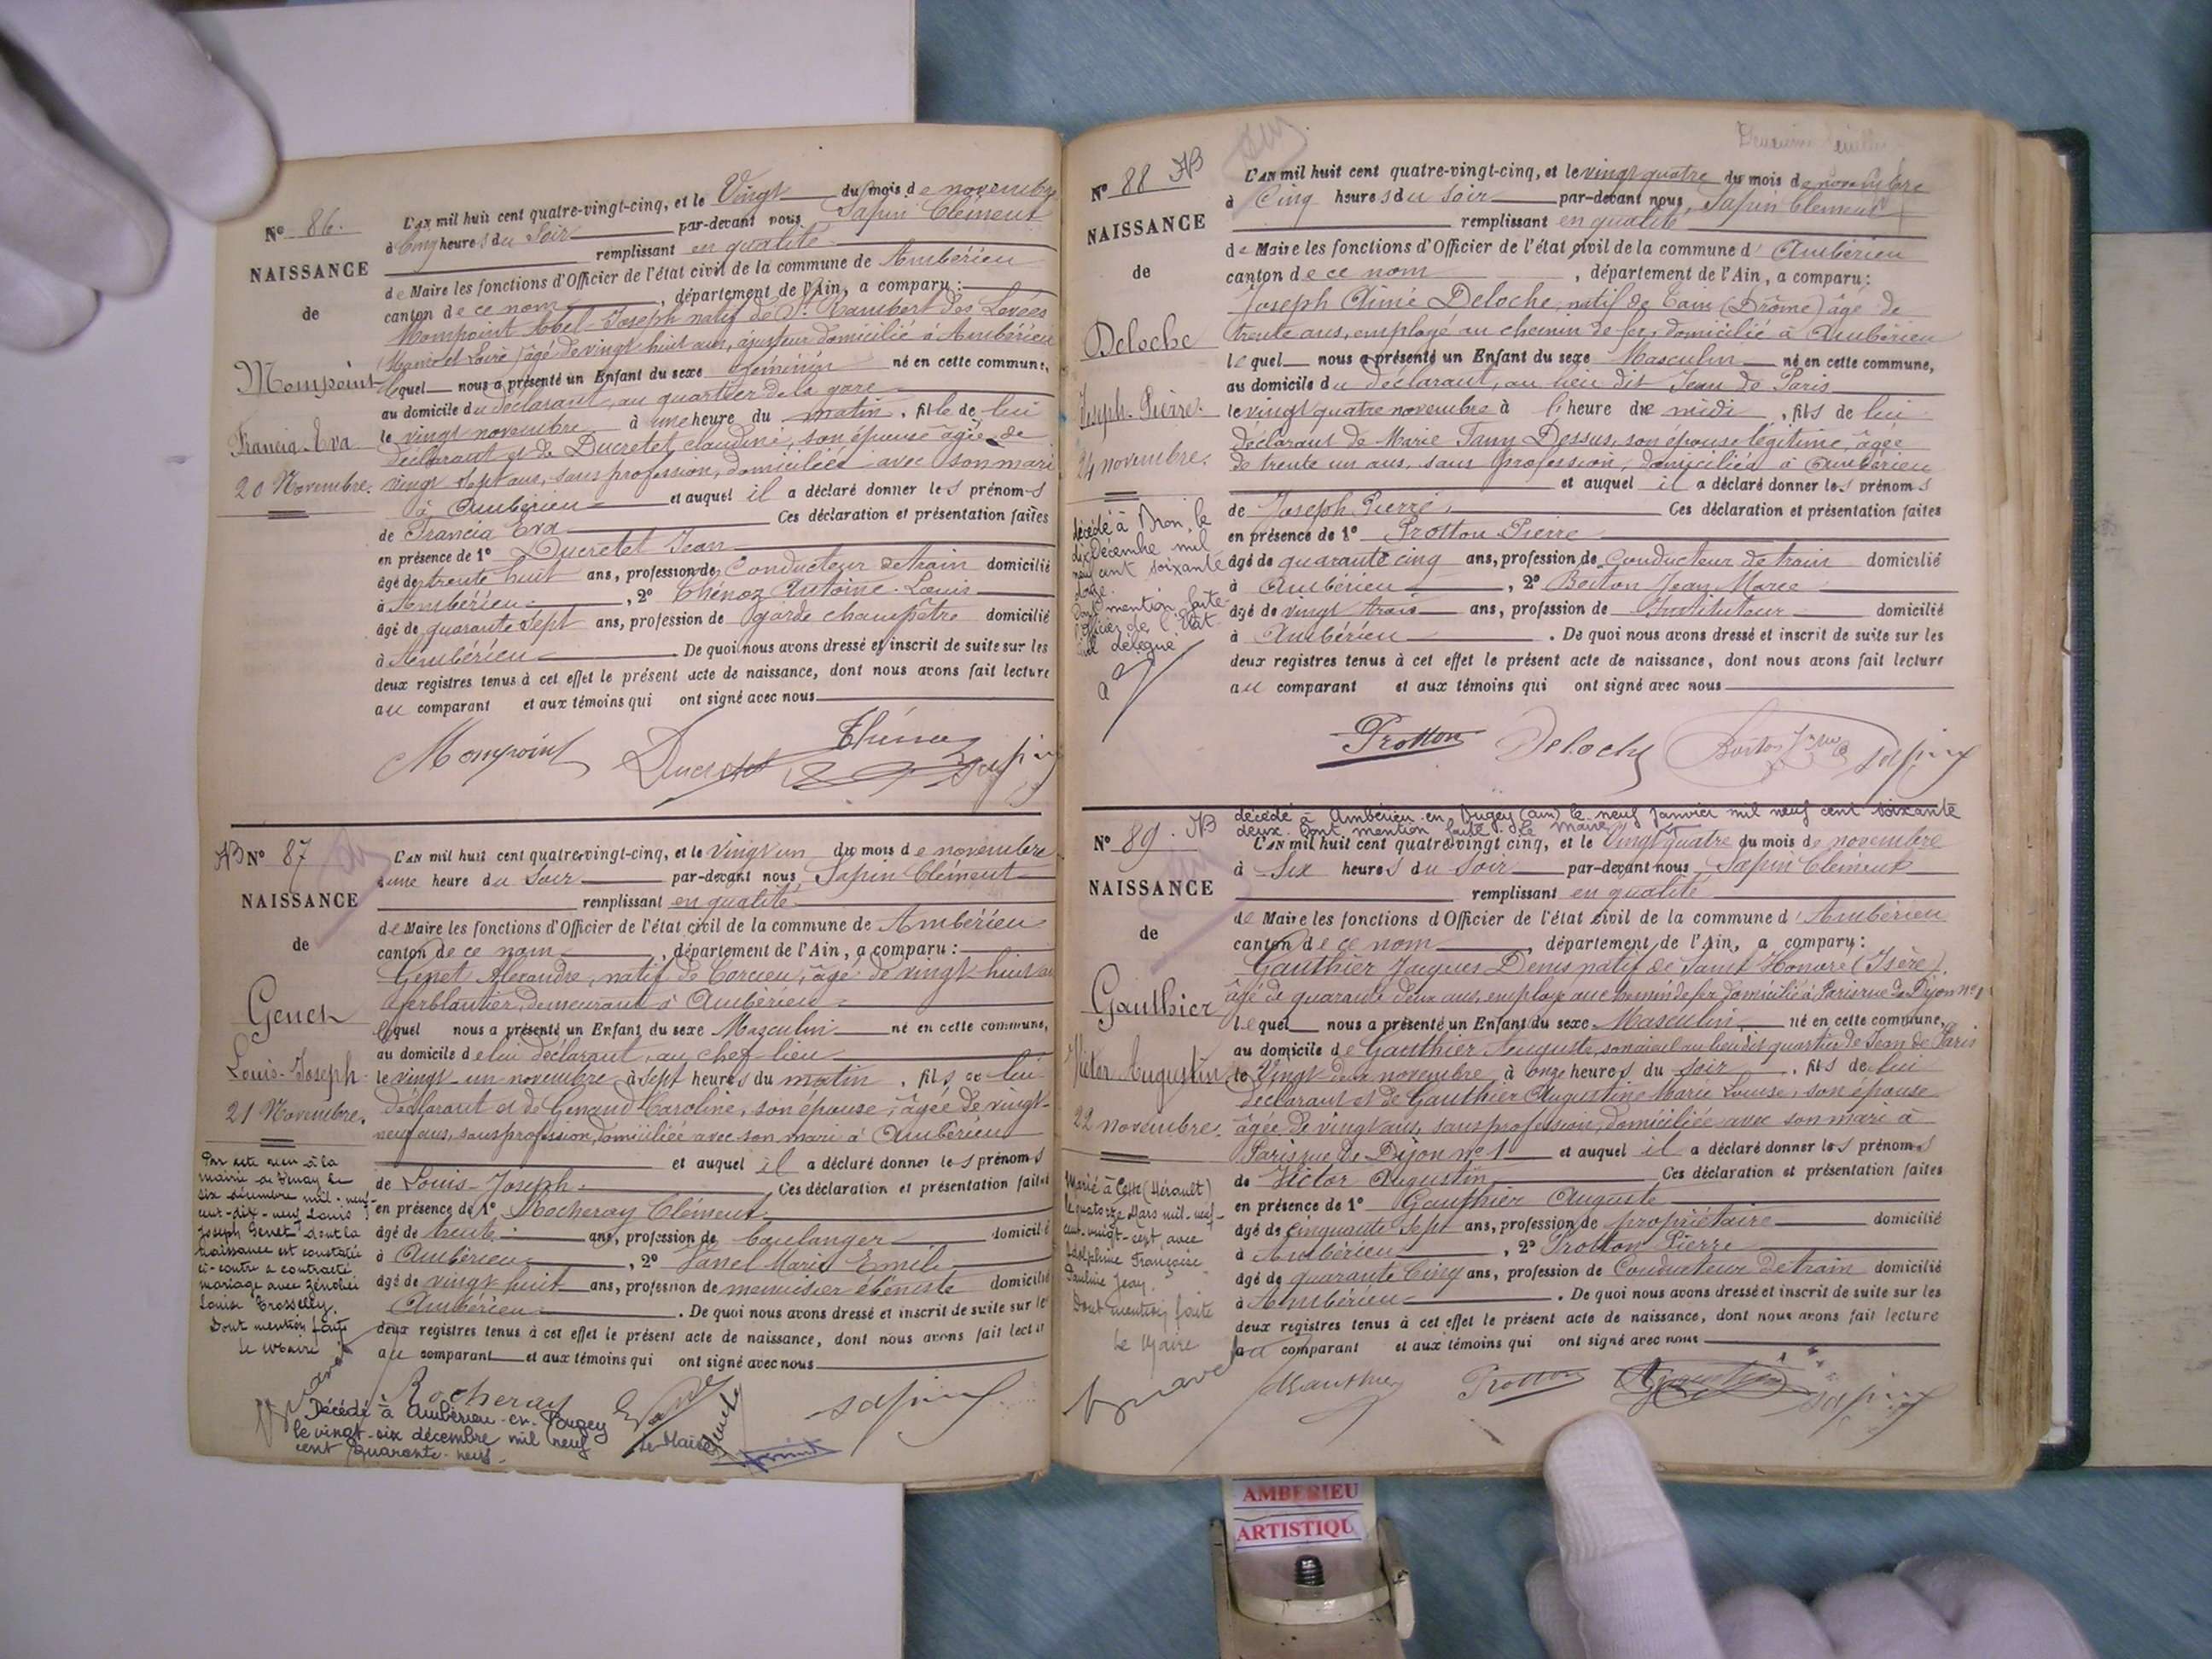 N° 86.
NAISSANCE
de
Mompoint
Francia Eva
20 Novembre.
L'AN mil huit cent quatre-vingt-cinq, et le Vingt du mois de novembre
à Cinq heures du Soir par-devant nous Sapin Clément
remplissant en qualité
de Maire les fonctions d'Officier de l'état civil de la commune de Ambérieu
canton de ce nom, département de l'Ain, a comparu :
Mompoint Abel-Joseph natif de St. Rambert des Levées
(Maine et Loire) âgé de vingt huit ans, ajusteur domicilié à Ambérieu
lequel nous a présenté un Enfant du sexe féminin né en cette commune,
au domicile du déclarant, au quartier de la gare
le vingt novembre à une heure du matin, fille de lui
déclarant et de Ducretet Claudine, son épouse âgée de
vingt sept ans, sans profession, domiciliée avec son mari
à Ambérieu et auquel il a déclaré donner les prénoms
de Francia Eva Ces déclaration et présentation faites
en présence de 1° Ducretet Jean
âgé de trente huit ans, profession de Conducteur de train domicilié
à Ambérieu, 2° Thénoz Antoine-Louis
âgé de quarante sept ans, profession de garde champêtre domicilié
à Ambérieu De quoi nous avons dressé et inscrit de suite sur les
deux registres tenus à cet effet le présent acte de naissance, dont nous avons fait lecture
au comparant et aux témoins qui ont signé avec nous
Mompoint Ducretet Thénoz Sapin
N° 87
NAISSANCE
de
Genet
Louis-Joseph
21 Novembre.
L'AN mil huit cent quatre-vingt-cinq, et le Vingt un du mois de novembre
à une heure du Soir par-devant nous Sapin Clément
remplissant en qualité
de Maire les fonctions d'Officier de l'état civil de la commune de Ambérieu
canton de ce nom, département de l'Ain, a comparu :
Genet Alexandre, natif de Corcieu, âgé de vingt huit ans
ferblantier, demeurant à Ambérieu
lequel nous a présenté un Enfant du sexe Masculin né en cette commune,
au domicile de lui déclarant, au chef-lieu
le vingt-un novembre à sept heures du matin, fils de lui
déclarant et de Genaud Caroline, son épouse, âgée de vingt-
neuf ans, sans profession, domiciliée avec son mari à Ambérieu
et auquel il a déclaré donner les prénoms
de Louis-Joseph. Ces déclaration et présentation faites
en présence de 1° Rocheray Clément
âgé de trente ans, profession de boulanger domicilié
à Ambérieu, 2° Vanel Marie Emile
âgé de vingt huit ans, profession de menuisier ébéniste domicilié
Ambérieu. De quoi nous avons dressé et inscrit de suite sur les
deux registres tenus à cet effet le présent acte de naissance, dont nous avons fait lecture
au comparant et aux témoins qui ont signé avec nous
Par acte reçu à la
mairie de Tenay le
six décembre mil-neuf-
cent-dix-neuf Louis
Joseph Genet dont la
naissance est constatée
ci-contre a contracté
mariage avec Zénobie
Louise Trosselly.
Dont mention faite
Le Maire
Rocheray Sapin
Décédé à Ambérieu-en-Bugey
le vingt-six décembre mil neuf
cent quarante-neuf.
Le Maire
N° 88
NAISSANCE
de
Deloche
Joseph-Pierre
24 novembre.
L'AN mil huit cent quatre-vingt-cinq, et le vingt quatre du mois de novembre
à Cinq heures du Soir par-devant nous, Sapin Clément
remplissant en qualité
de Maire les fonctions d'Officier de l'état civil de la commune d'Ambérieu
canton de ce nom, département de l'Ain, a comparu :
Joseph Aimé Deloche, natif de Tain (Drôme) âgé de
trente ans, employé au chemin de fer, domicilié à Ambérieu
lequel nous a présenté un Enfant du sexe Masculin né en cette commune,
au domicile du déclarant, au lieu dit Jean de Paris
le vingt quatre novembre à l'heure de midi, fils de lui
déclarant de Marie Fany Dessus, son épouse légitime, âgée
de trente un ans, sans profession, domiciliée à Ambérieu
et auquel il a déclaré donner les prénoms
de Joseph Pierre, Ces déclaration et présentation faites
en présence de 1° Protton Pierre
âgé de quarante cinq ans, profession de Conducteur de train domicilié
à Ambérieu, 2° Boiton Jean Marie
âgé de vingt trois ans, profession de Instituteur domicilié
à Ambérieu. De quoi nous avons dressé et inscrit de suite sur les
deux registres tenus à cet effet le présent acte de naissance, dont nous avons fait lecture
au comparant et aux témoins qui ont signé avec nous
décédé à Bron, le
dix décembre mil
neuf cent soixante
douze.
Dont mention faite
l'officier de l'Etat
civil délégué
Protton Deloche Boiton Sapin
N° 89.
NAISSANCE
de
Gauthier
Victor Augustin
22 novembre.
décédé à Ambérieu-en-Bugey (Ain) le neuf janvier mil neuf cent soixante
deux. Dont mention faite. Le Maire
L'AN mil huit cent quatre-vingt cinq, et le Vingt quatre du mois de novembre
à Six heures du Soir par-devant nous, Sapin Clément
remplissant en qualité
de Maire les fonctions d'Officier de l'état civil de la commune d'Ambérieu
canton de ce nom, département de l'Ain, a comparu :
Gauthier Jacques Denis natif de Saint Honoré (Isère),
âgé de quarante deux ans, employé au chemin de fer domicilié à Paris rue de Dijon n° 1
lequel nous a présenté un Enfant du sexe Masculin né en cette commune,
au domicile de Gauthier Auguste, son aïeul au lieu dit quartier de Jean de Paris
le Vingt deux novembre à onze heures du soir, fils de lui
déclarant et de Gauthier Augustine Marie Louise, son épouse
âgée de vingt ans, sans profession, domiciliée avec son mari à
Paris rue de Dijon n° 1 et auquel il a déclaré donner les prénoms
de Victor Augustin Ces déclaration et présentation faites
en présence de 1° Gauthier Auguste
âgé de cinquante sept ans, profession de propriétaire domicilié
à Ambérieu, 2° Protton Pierre
âgé de quarante Cinq ans, profession de Conducteur de train domicilié
à Ambérieu. De quoi nous avons dressé et inscrit de suite sur les
deux registres tenus à cet effet le présent acte de naissance, dont nous avons fait lecture
au comparant et aux témoins qui ont signé avec nous
Marié à Cette (Hérault)
le quatorze Mars mil-neuf-
cent-vingt-sept, avec
Adolphine Françoise
Pauline Jean.
Dont mention faite
Le Maire
Gauthier Protton Sapin
AMBERIEU
ARTISTIQU